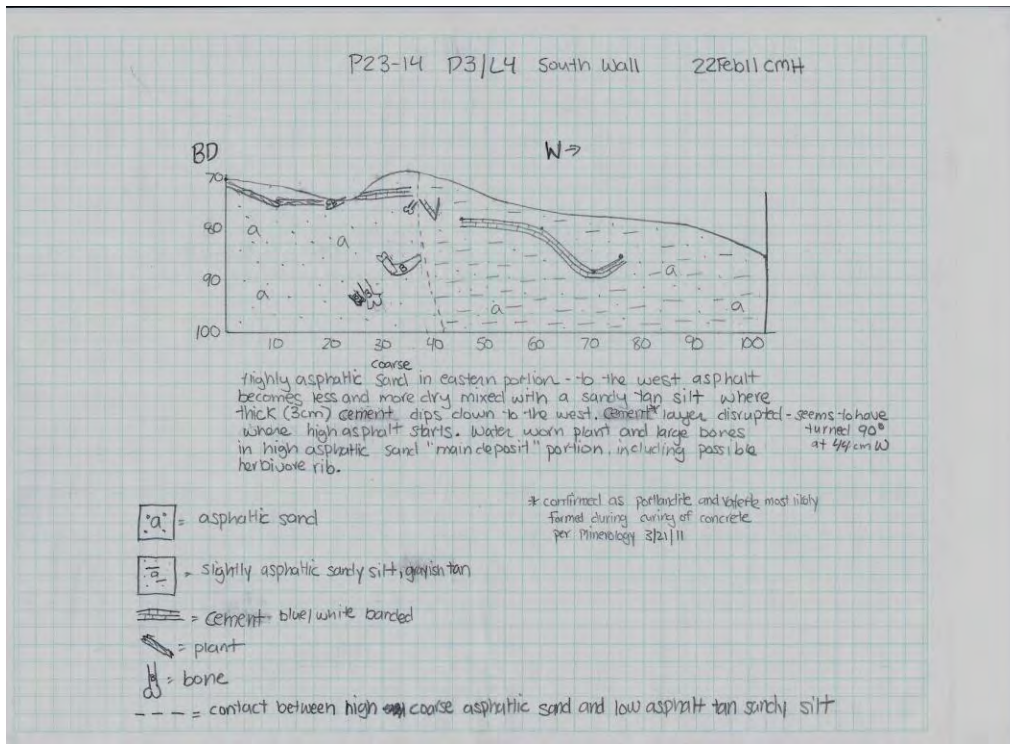 P23-14 D3/L4 South Wall 22Feb11 CMH
BD
W→
70
80
a a
90
a a
a a
100
10 20 30 40 50 60 70 80 90 100
coarse
Highly asphaltic sand in eastern portion - to the west asphalt
becomes less and more dry mixed with a sandy tan silt where
thick (3cm) cement dips down to the west. cement* layer disrupted - seems to have
where high asphalt starts. Water worn plant and large bones turned 90°
in high asphaltic sand "main deposit" portion, including possible at 44 cm W
herbivore rib.
* confirmed as portlandite and vaterite most likely
formed during curing of concrete
per Minerology 3/21/11
"a" = asphaltic sand
a = slightly asphaltic sandy silt, grayish tan
= cement blue/white banded
= plant
= bone
--- = contact between high coarse asphaltic sand and low asphalt tan sandy silt